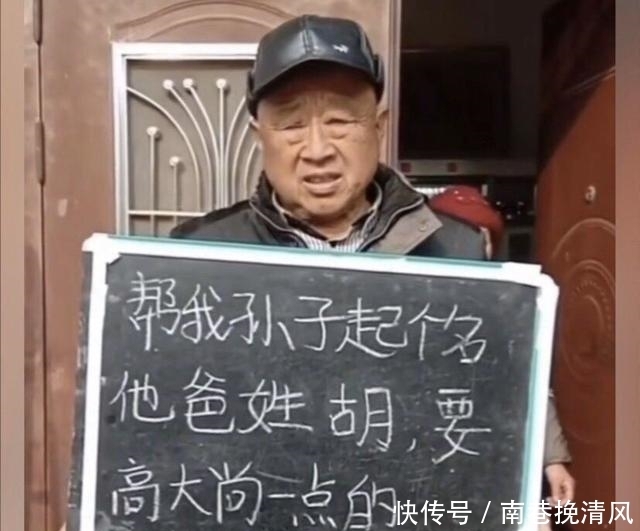 帮我孙子起个名
他爸姓胡,要
高大尚一点的
快传号/南巷挽清风